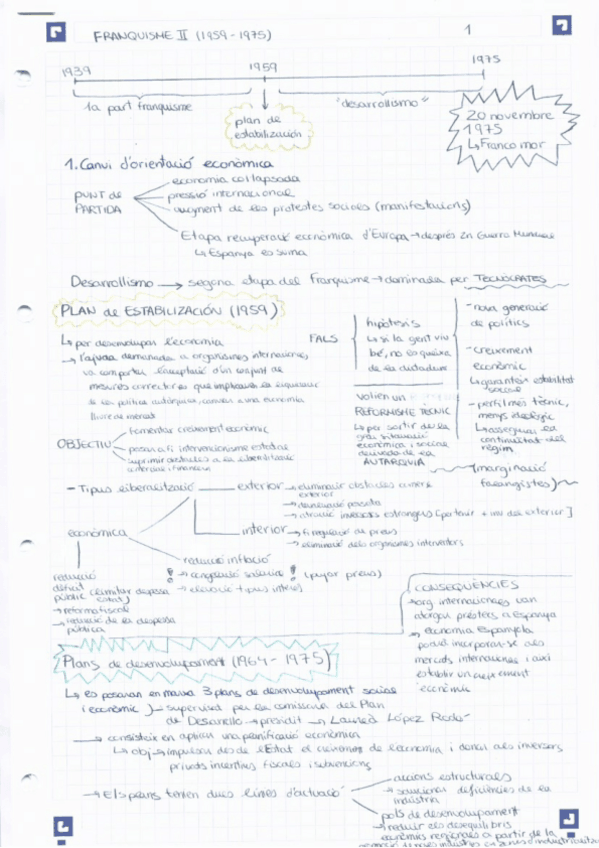 FRANQUISME II (1959-1975)
1
1939
1959
1975
1a part franquisme
"desarrollismo"
plan de
estabilización
20 novembre
1975
↳Franco mor
1. Canvi d'orientació econòmica
PUNT DE
PARTIDA
economia col·lapsada
pressió internacional
augment de les protestes socials (manifestacions)
Etapa recuperació econòmica d'Europa → després 2n Guerra Mundial
↳ Espanya es suma
Desarrollismo → segona etapa del Franquisme → dominada per TECNÒCRATES
PLAN de ESTABILIZACIÓN (1959)
↳ per desenvolupar l'economia
→ l'ajuda demanada a organismes internacionals,
va comportar l'acceptació d'un conjunt de
mesures correctores que implicaven la liquidació
de la política autàrquica, convers a una economia
lliure de mercat
OBJECTIU
fomentar creixement econòmic
posar a fi intervencionisme estatal
suprimir obstacles a la liberalització
comercial i financera
FALS
hipòtesis
↳ si la gent viu
bé, no es queixa
de la dictadura
volien un
REFORMISME TÈCNIC
↳ per sortir de la
greu situació
econòmica i social
derivada de la
AUTARQUIA
- nova generació
de polítics
- creixement
econòmic
↳ garanteix estabilitat
social
- perfil més tècnic,
menys ideològic
↳ assegurar la
continuïtat del
règim
(marginació
falangistes)
- Tipus liberalització
exterior
→ eliminació obstacles comerç
exterior
→ devaluació pesseta
→ atracció inversors estrangers
interior
→ fi regulació de preus
→ eliminació dels organismes interventors
econòmica
reducció
dèficit
públic (limitar despesa
estat)
→ reforma fiscal
→ reducció de la despesa
pública
reducció inflació
! → congelació salarial ! (pujar preus)
→ elevació tipus interès
CONSEQÜÈNCIES
→ org internacionals van
atorgar préstecs a Espanya
→ economia espanyola
podia incorporar-se als
mercats internacionals i així
establir un creixement
econòmic
Plans de desenvolupament (1964-1975)
↳ es posaran en marxa 3 plans de desenvolupament social
i econòmic
→ supervisat per la comissaria del Plan
de Desarrollo → presidit → Laureà López Rodó
→ consisteix en aplicar una planificació econòmica
↳ obj → impulsar des de l'Estat el creixement de l'economia i donar als inversors
privats incentius fiscals i subvencions
→ Els plans tenien dues línies d'actuació
accions estructurals
→ solucionar deficiències de la
indústria
pols de desenvolupament
→ reduir els desequilibris
econòmics regionals a partir de la